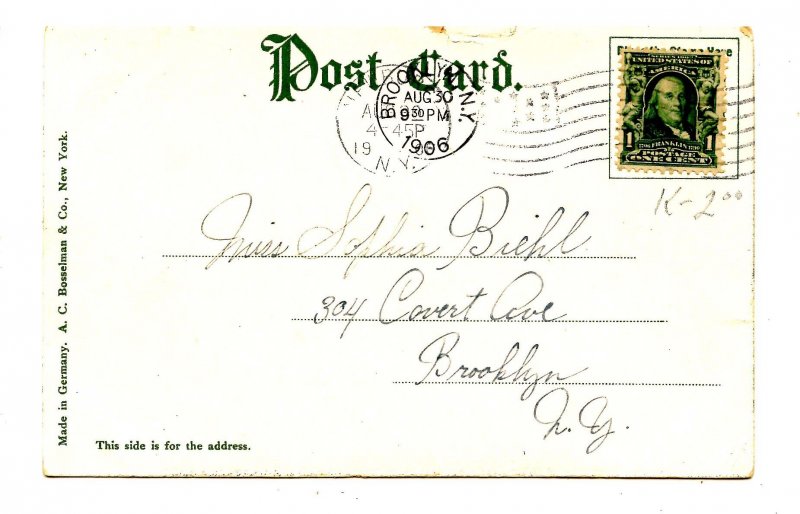 Post Card.
Place the Stamp Here
SERIES 1902
UNITED STATES OF
AMERICA
1 1
1706 FRANKLIN 1790
POSTAGE
ONE CENT
BROOKLYN N.Y.
AUG 30
9 30 PM
1906
4 45P
19
N.Y.
K-2.00
Miss Sophia Biehl
304 Covert Ave
Brooklyn
N.Y.
Made in Germany. A. C. Bosselman & Co., New York.
This side is for the address.